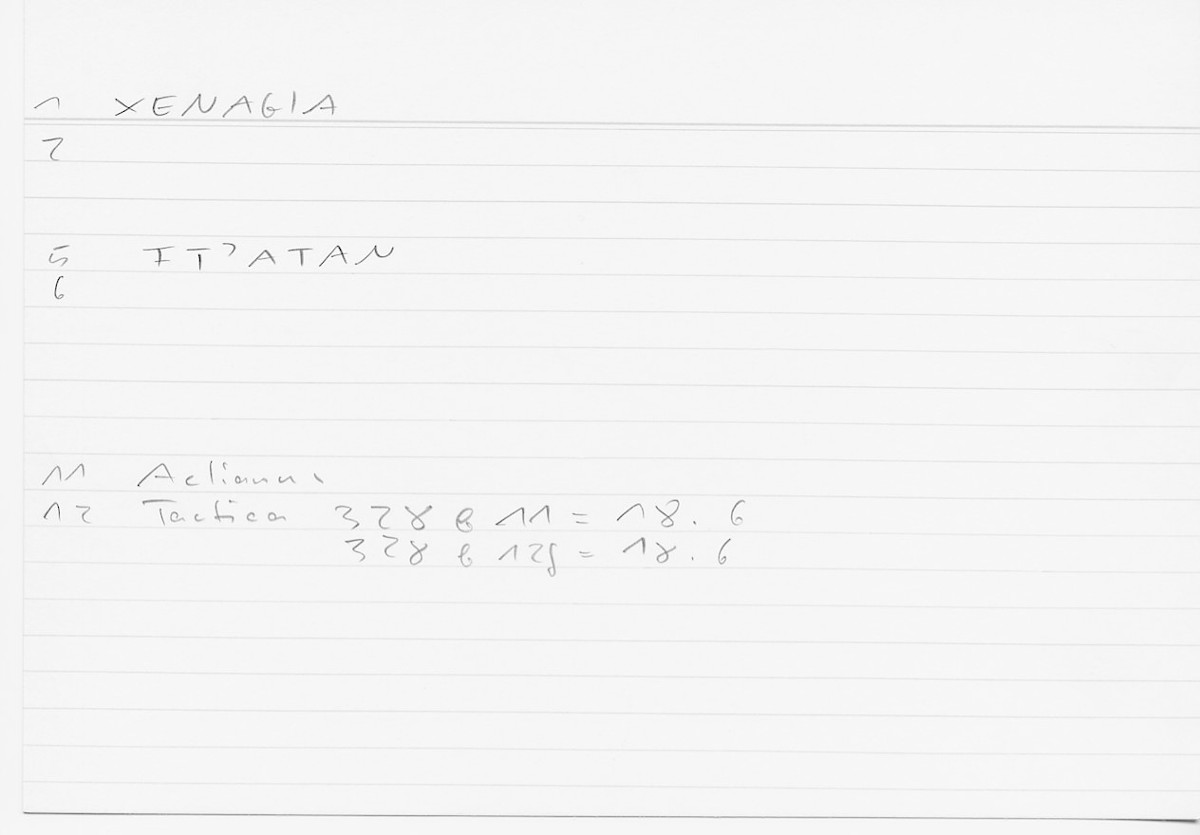 1 XENAGIA
2
5 IṬʾATAN
6
11 Aelianus
12 Tactica 328 b 11 = 18. 6
328 b 12f = 18. 6